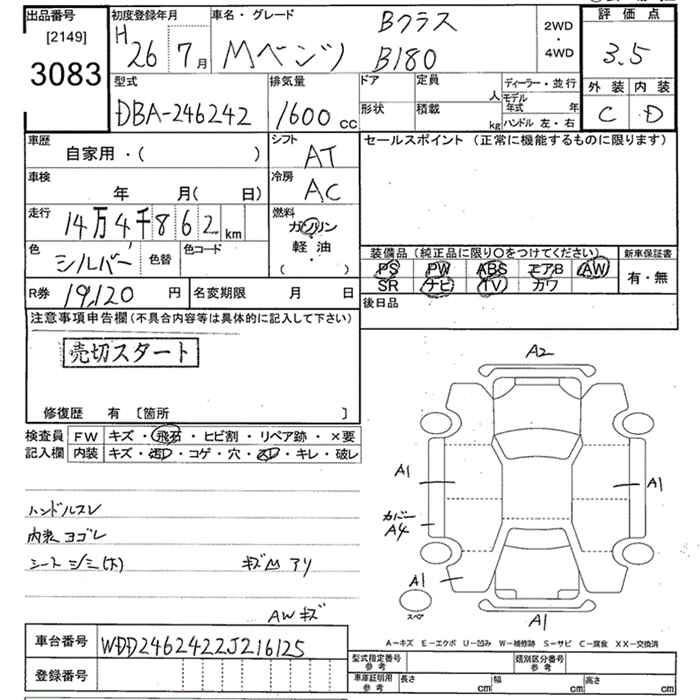 出品番号
[2149]
3083
初度登録年月
H 26 7月
車名・グレード
Bクラス
Mベンツ B180
2WD
・
4WD
評価点
3.5
外装 内装
C D
型式
DBA-246242
排気量
1600 cc
ドア
形状
定員
人
積載
kg
ディーラー・並行
モデル年式 年
ハンドル 左・右
車歴
自家用・( )
シフト
AT
セールスポイント (正常に機能するものに限ります)
車検
年 月( 日)
冷房
AC
走行
14万4千862km
燃料
ガソリン
軽油
・
( )
色
シルバー
色替
色コード
装備品(純正品に限り〇をつけてください)
PS PW ABS エアB AW
SR ナビ TV カワ
新車保証書
有・無
R券 19,120 円
名変期限 月 日
後日品
注意事項申告欄(不具合内容等は具体的に記入して下さい)
売切スタート
修復歴 有 〔箇所 〕
検査員記入欄
FW キズ・飛石・ヒビ割・リペア跡・×要
内装 キズ・汚レ・コゲ・穴・スレ・キレ・破レ
ハンドルスレ
内装ヨゴレ
シートシミ(大) キズ凹アリ
AWキズ
A2
A1
A1
カバー
A4
A1
スペア
A1
A-キズ E-エクボ U-凹み W-補修跡 S-サビ C-腐食 XX-交換済
車台番号 WDD2462422J216125
登録番号
型式指定番号 参考
類別区分番号 参考
車庫証明用 参考
長さ cm
幅 cm
高さ cm